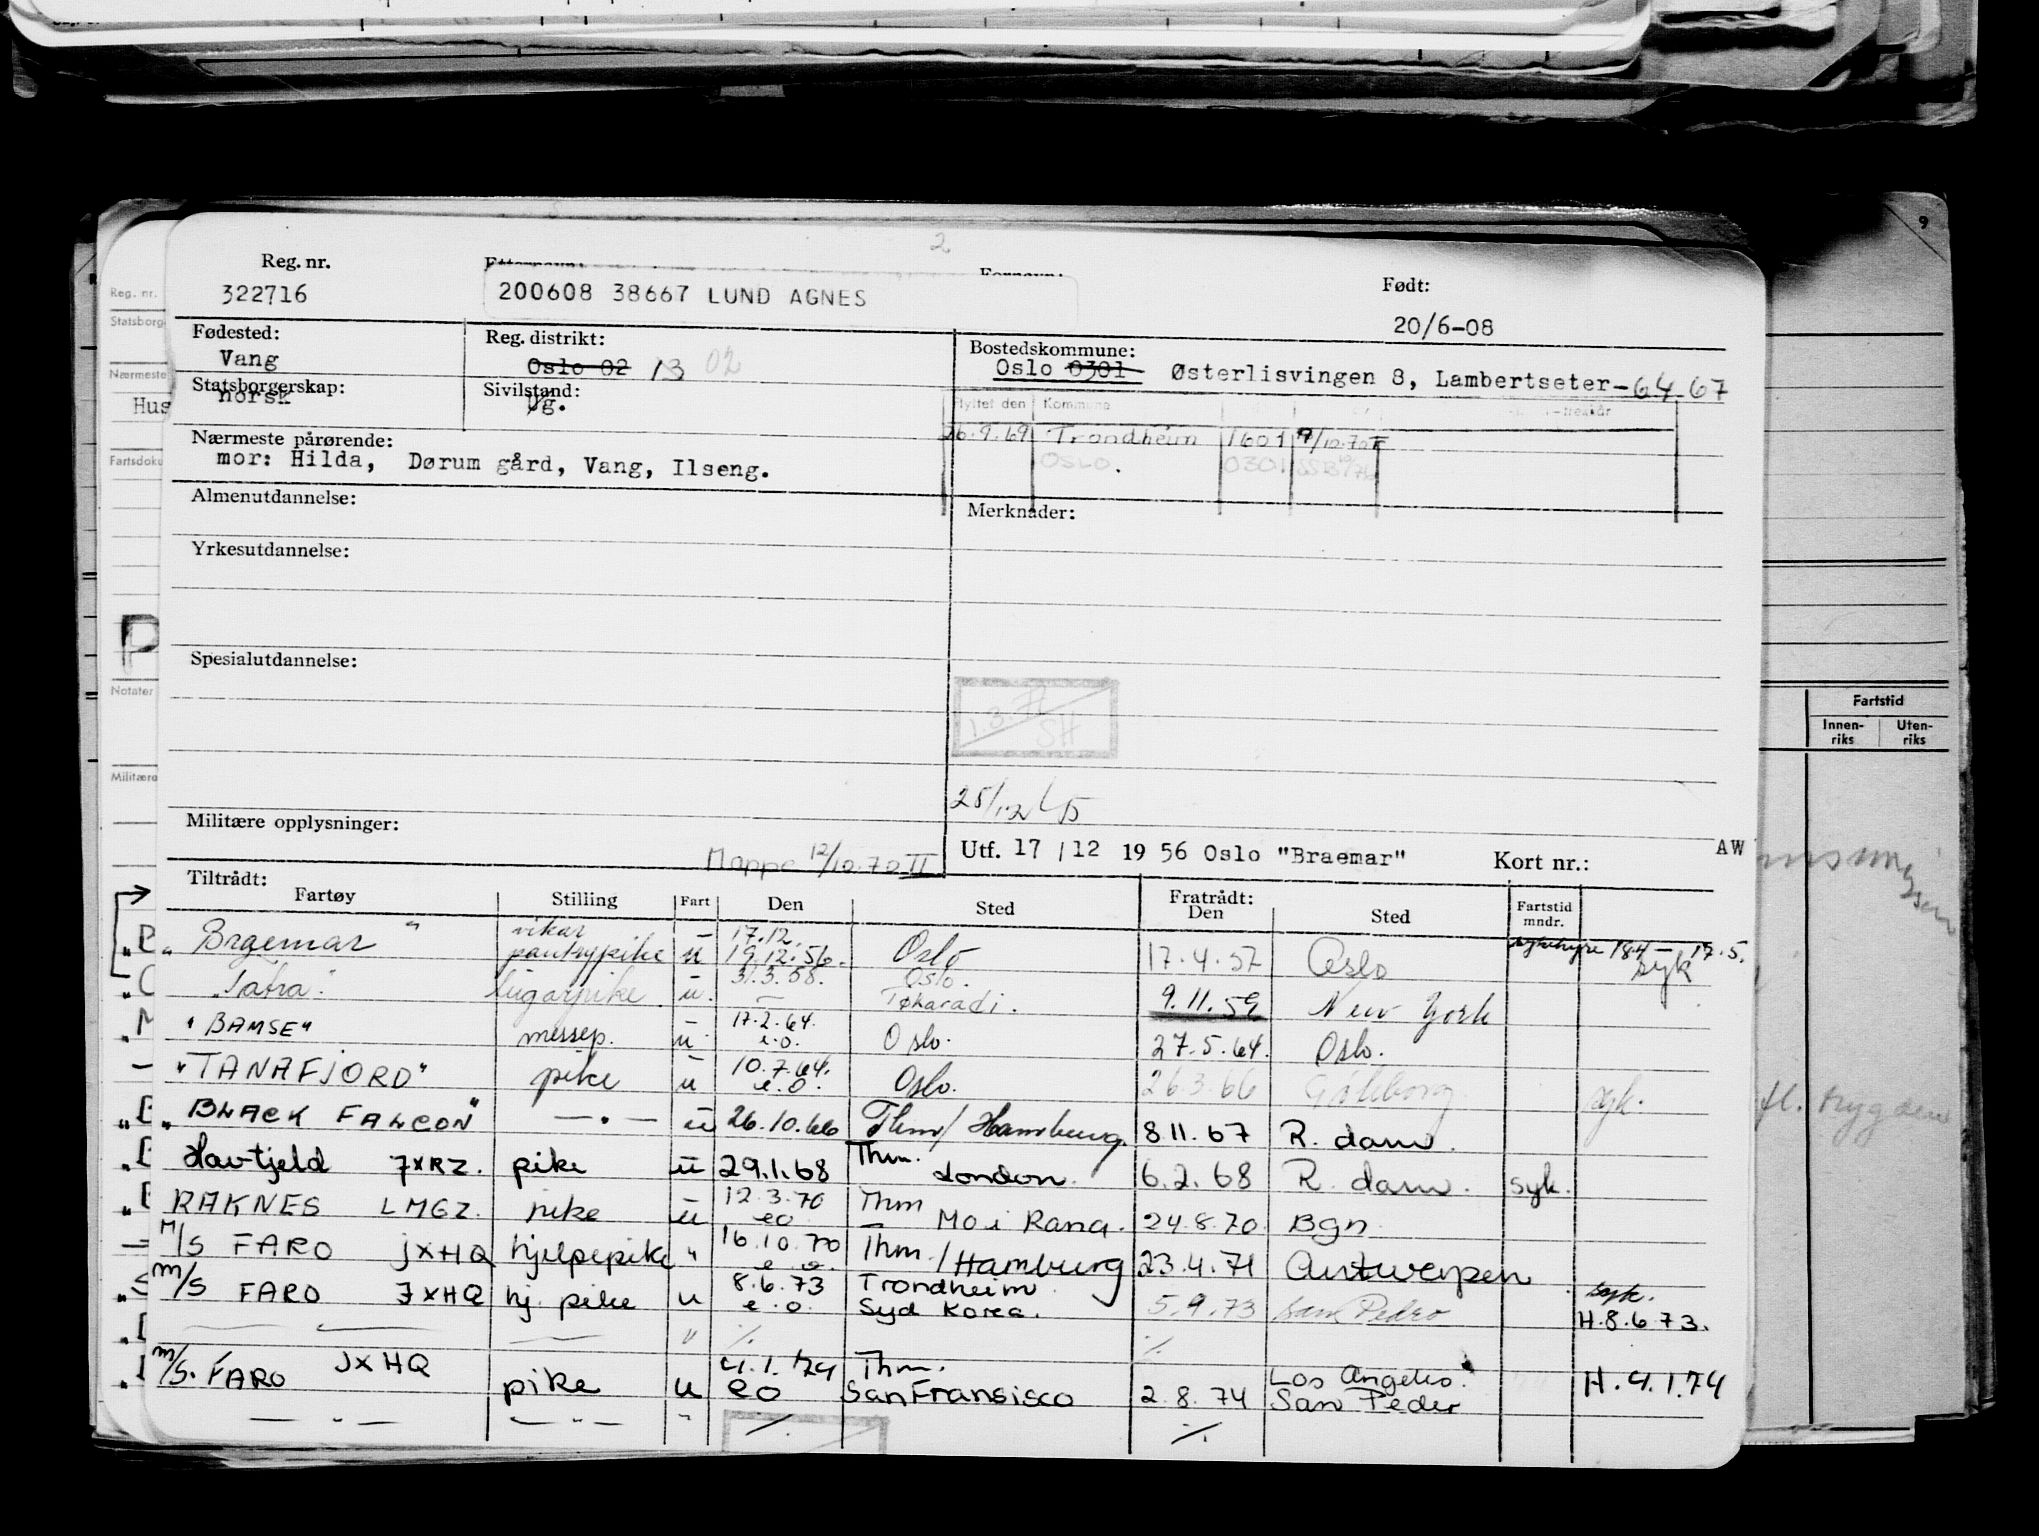 2
Reg. nr. Fornavn: Født:
322716 200608 38667 LUND AGNES 20/6-08
Fødested: Reg. distrikt: Bostedskommune:
Vang Oslo 02 13 02 Oslo 0301 Østerlisvingen 8, Lambertseter-64.67
Statsborgerskap: Sivilstand: Flyttet den Kommune
norsk Ug.
26.9.69 Trondheim 1601 9/12.70
Nærmeste pårørende:
mor: Hilda, Dørum gård, Vang, Ilseng. OSLO. 0301
Almenutdannelse: Merknader:
Yrkesutdannelse:
Spesialutdannelse:
1.3.71
SH
25/12
Militære opplysninger:
Mappe 12/10.70 II Utf. 17 / 12 19 56 Oslo "Braemar" Kort nr.: AW
Tiltrådt: Fratrådt:
Fartøy Stilling Fart Den Sted Den Sted Fartstid mndr.
"Braemar" vikar pantrypike u 17.12. 19.12.56. Oslo 17.4.57 Oslo 18.4 — 17.5. syk
"Tatra" lugarpike u. 31.3.58. Oslo. Tokaradi. 9.11.59 New York
"BAMSE" messep. u 17.2.64. e.o. Oslo. 27.5.64. Oslo.
"TANAFJORD" pike u 10.7.64. e.o. Oslo. 26.3.66 Göteborg syk.
"BLACK FALCON" — . — u 26.10.66 Thm/Hamburg. 8.11.67 R.dam.
Havtjeld JXRZ. pike u 29.1.68 Thm. London. 6.2.68 R.dam. syk.
RAKNES LMGZ. pike u 12.3.70 eo Thm Mo i Rana. 24.8.70. Bgn
M/S FARO JXHQ hjelpepike " 16.10.70 e.o. Thm./Hamburg 23.4.71 Antwerpen
M/S FARO JXHQ hj. pike u 8.6.73 e.o. Trondheim Syd Korea. 5.9.73 San Pedro syk. H.8.6.73.
" ./. ./.
m/s. FARO JXHQ pike u 4.1.'74 eo Thm. San Fransisco 2.8.74 Los Angeles. San Peder H.4.1.74
— " — — " — " ./. ./.
Reg. nr.
Statsborg
Nærmeste
Hus
Fartsdoku
P
Notater
Militære
9
Fartstid
Innen-riks Uten-riks